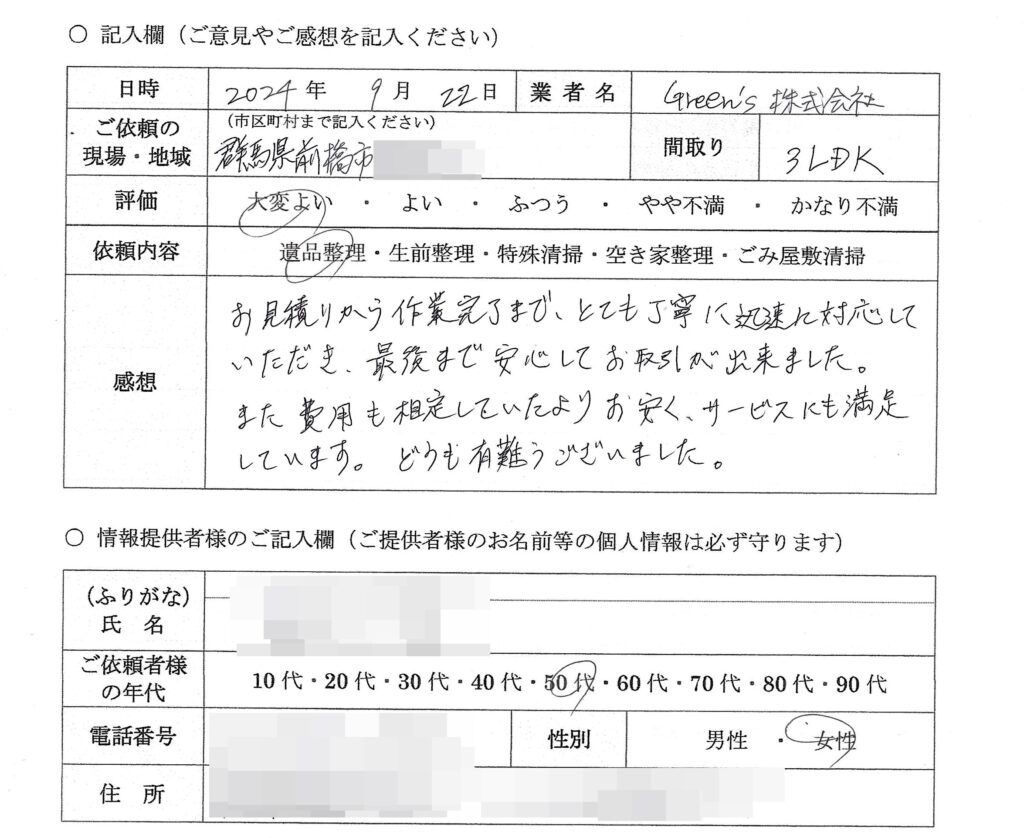 ○ 記入欄（ご意見やご感想を記入ください）
日時 2024年 9月 22日 業者名 Green's 株式会社
ご依頼の現場・地域 （市区町村まで記入ください） 群馬県前橋市 間取り 3LDK
評価 大変よい ・ よい ・ ふつう ・ やや不満 ・ かなり不満
依頼内容 遺品整理・生前整理・特殊清掃・空き家整理・ごみ屋敷清掃
感想
お見積りから作業完了まで、とても丁寧に迅速に対応して
いただき、最後まで安心してお取引が出来ました。
また費用も想定していたよりお安く、サービスにも満足
しています。どうも有難うございました。
○ 情報提供者様のご記入欄（ご提供者様のお名前等の個人情報は必ず守ります）
（ふりがな）
氏 名
ご依頼者様の年代 10代・20代・30代・40代・50代・60代・70代・80代・90代
電話番号 性別 男性 ・ 女性
住 所